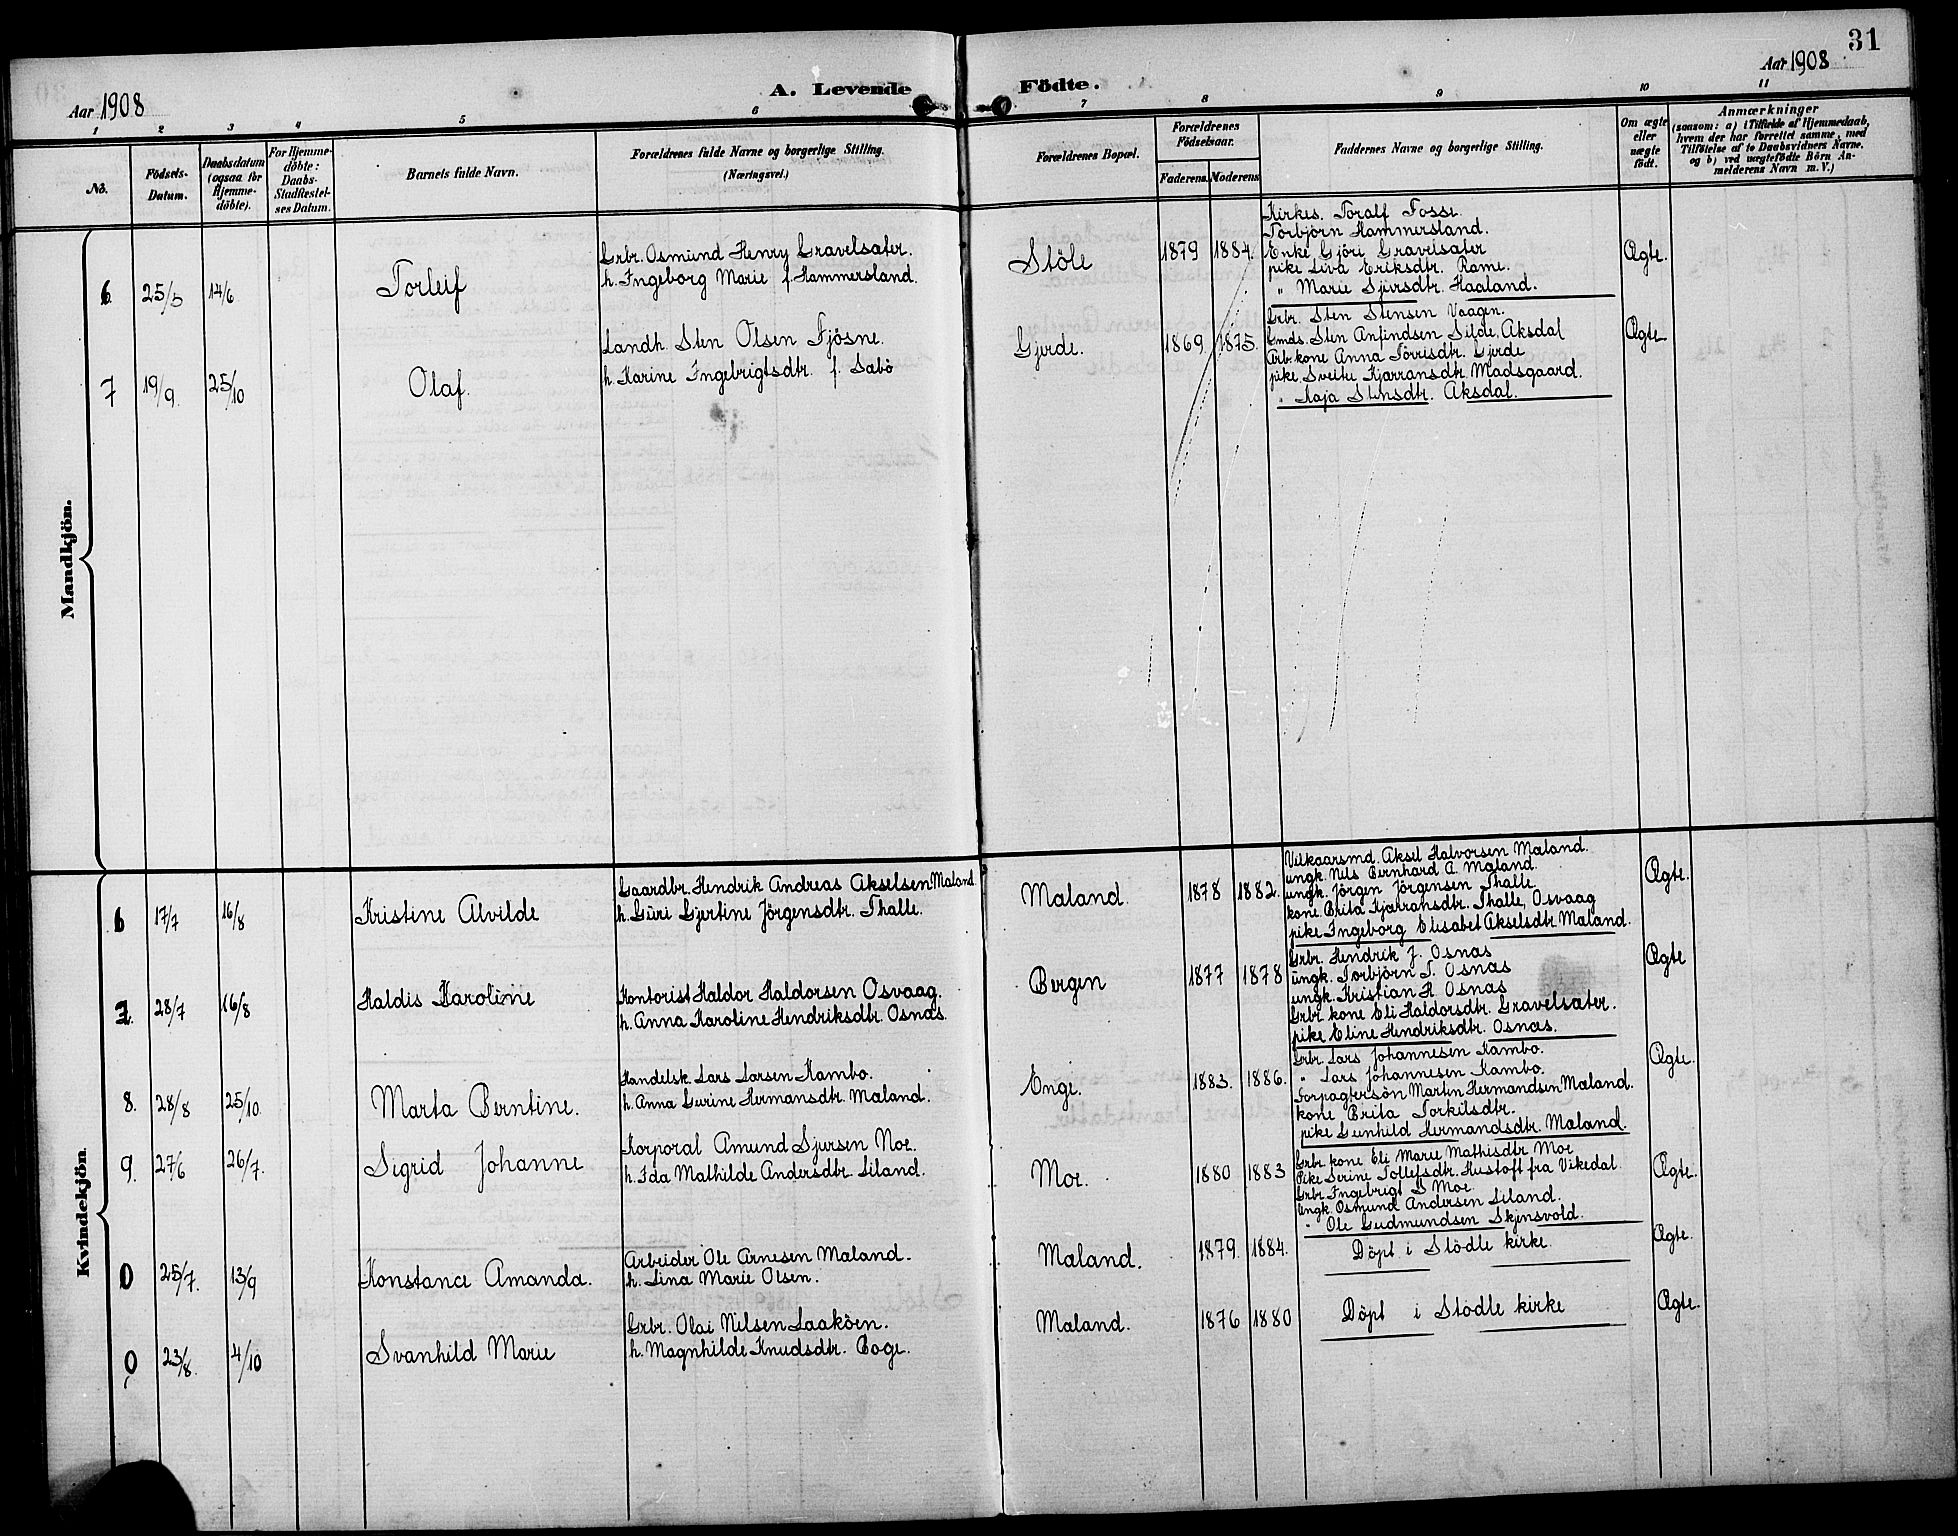 31
Aar 1908
A. Levende Födte.
Aar 1908
1 2 3 4 5 6 7 8 9 10 11
No.
Födsels-Datum.
Daabsdatum (ogsaa for Hjemme-döbte).
For Hjemme-döbte: Daabs-Stadfæstel-ses Datum.
Barnets fulde Navn.
Forældrenes fulde Navne og borgerlige Stilling.
(Næringsvei.)
Forældrenes Bopæl.
Forældrenes Födselsaar.
Faderens. Moderens.
Faddernes Navne og borgerlige Stilling.
Om ægte eller uægte födt.
Anmærkninger
(saasom: a) i Tilfælde af Hjemmedaab, hvem der har forrettet samme, med Tilföielse af to Daabsvidners Navne, og b) ved uægtefödte Börn Anmelderens Navn m. V.)
Mandkjön.
6 25/5 14/6 Torleif
Grbr. Osmund Henry Gravelsæter.
h. Ingeborg Marie f. Hammersland.
Stöle 1879 1884.
Kirkes. Toralf Fosse.
Torbjörn Hammersland.
Enke Gjöri Gravelsæter
pike Siva Eriksdtr. Rame.
" Marie Sjursdtr. Haaland.
Ægte.
7 19/9. 25/10 Olaf.
Landh. Sten Olsen Fjösne.
h. Karine Ingebrigtsdtr. f. Sæbö
Gjerde. 1869 1875.
Grbr. Sten Stensen Vaagen.
Gmds. Sten Anfindsen Silde, Aksdal
Arb. kone Anna Törrisdtr. Gjerde
pike Sveite Kjarransdtr. Madsgaard.
" Kaja Stensdtr. Aksdal.
Ægte
Kvindekjön.
6 17/7 16/8 Kristine Alvilde
Gaardbr. Hendrik Andreas Akselsen Mæland.
h. Guri Gjertine Jörgensdtr. Thalle.
Mæland 1878 1882.
Vilkaarsmd. Aksel Halvorsen Mæland.
ungk. Nils Bernhard A. Mæland
ungk. Jörgen Jörgensen Thalle
kone Brita Kjarransdtr. Thalle, Osvaag
pike Ingeborg Elisabet Akselsdtr. Mæland.
Ægte.
7. 28/7 16/8 Haldis Karoline
Kontorist Haldor Haldorsen Osvaag.
h. Anna Karoline Hendriksdtr. Osnæs.
Bergen 1877 1878
Grbr. Hendrik J. Osnæs
ungk. Torbjörn T. Osnæs
ungk. Kristian H. Osnæs
Grbr. kone Eli Haldorsdtr. Gravelsæter.
pike Eline Hendriksdtr. Osnæs.
Ægte
8. 28/8 25/10. Marta Berntine.
Handelsk. Lars Larsen Kambo.
h. Anna Gurine Hermansdtr. Mæland.
Enge. 1883. 1886.
Grbr. Lars Johannesen Kambo.
" Lars Johannesen Kambo.
Forpagtersön Martin Hermandsen Mæland.
kone Brita Torkilsdtr.
pike Gunhild Hermandsdtr. Mæland.
Ægte.
9. 27/6 26/7. Sigrid Johanne
Korporal Amund Sjursen Moe.
h. Ida Mathilde Andersdtr. Liland.
Moe. 1880 1883
Grbr. kone Eli Marie Mathisdtr Moe
Pike Serine Tollefsdtr. Hustoft fra Vikedal.
Grbr. Ingebrigt S Moe
Ungk. Osmund Andersen Liland.
" Ole Gudmundsen Skjensvold.
Ægte.
0 25/7. 13/9 Konstance Amanda.
Arbeider Ole Arnesen Mæland.
h. Lina Marie Olsen.
Mæland. 1879. 1884.
Döpt i Stödle kirke.
Ægte.
0 23/8. 4/10 Svanhild Marie
Grbr. Olai Nilsen Laaköen.
h. Magnhilde Knudsdtr. Boge.
Mæland. 1876 1880
Döpt i Stödle kirke
Ægte.